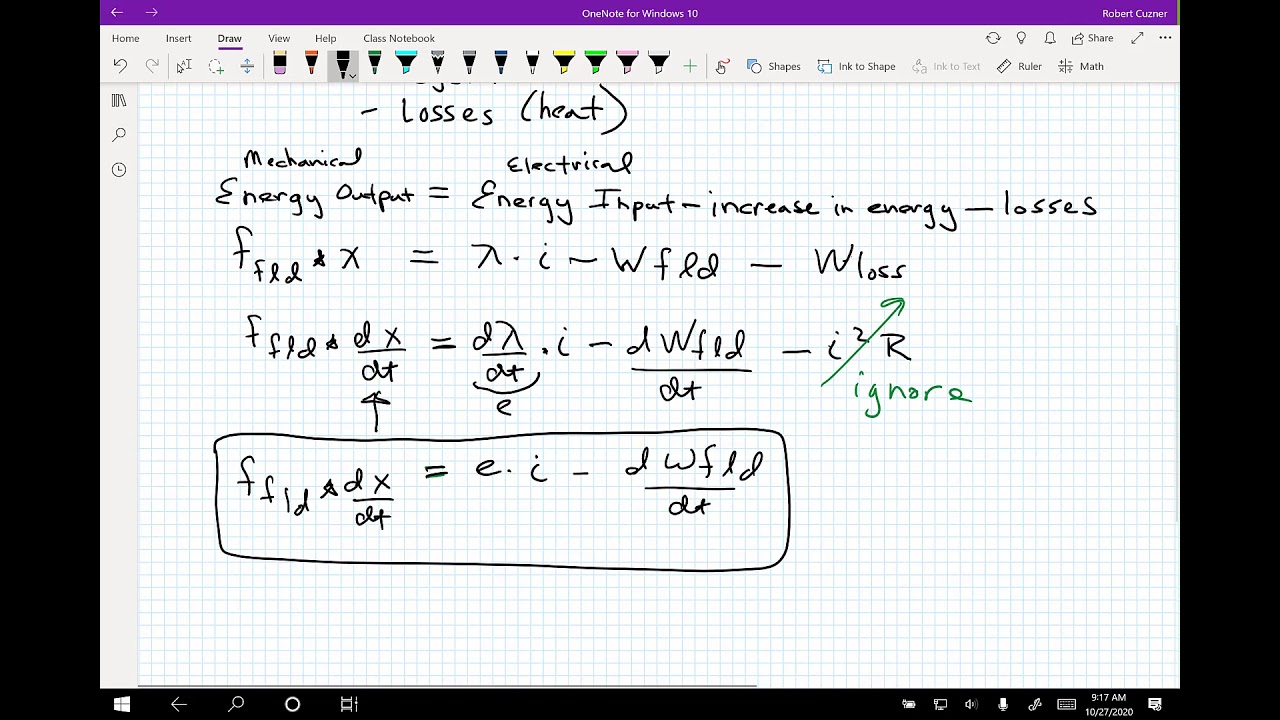 OneNote for Windows 10
Robert Cuzner
Home Insert Draw View Help Class Notebook
Share
Shapes Ink to Shape Ink to Text Ruler Math
- Losses (heat)
Mechanical Electrical
Energy Output = Energy Input - increase in energy - losses
f_fld * x = λ · i - Wfld - Wloss
f_fld * dx/dt = dλ/dt · i - dWfld/dt - i² R
e
ignore
f_fld * dx/dt = e · i - dWfld/dt
9:17 AM
10/27/2020